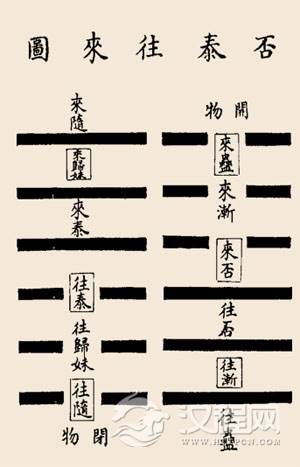 否泰往來圖
開物
來蠱
來漸
來否
往否
往漸
往蠱
來隨
來歸妹
來泰
往泰
往歸妹
往隨
閉物
汉程网
HTTPCN.COM